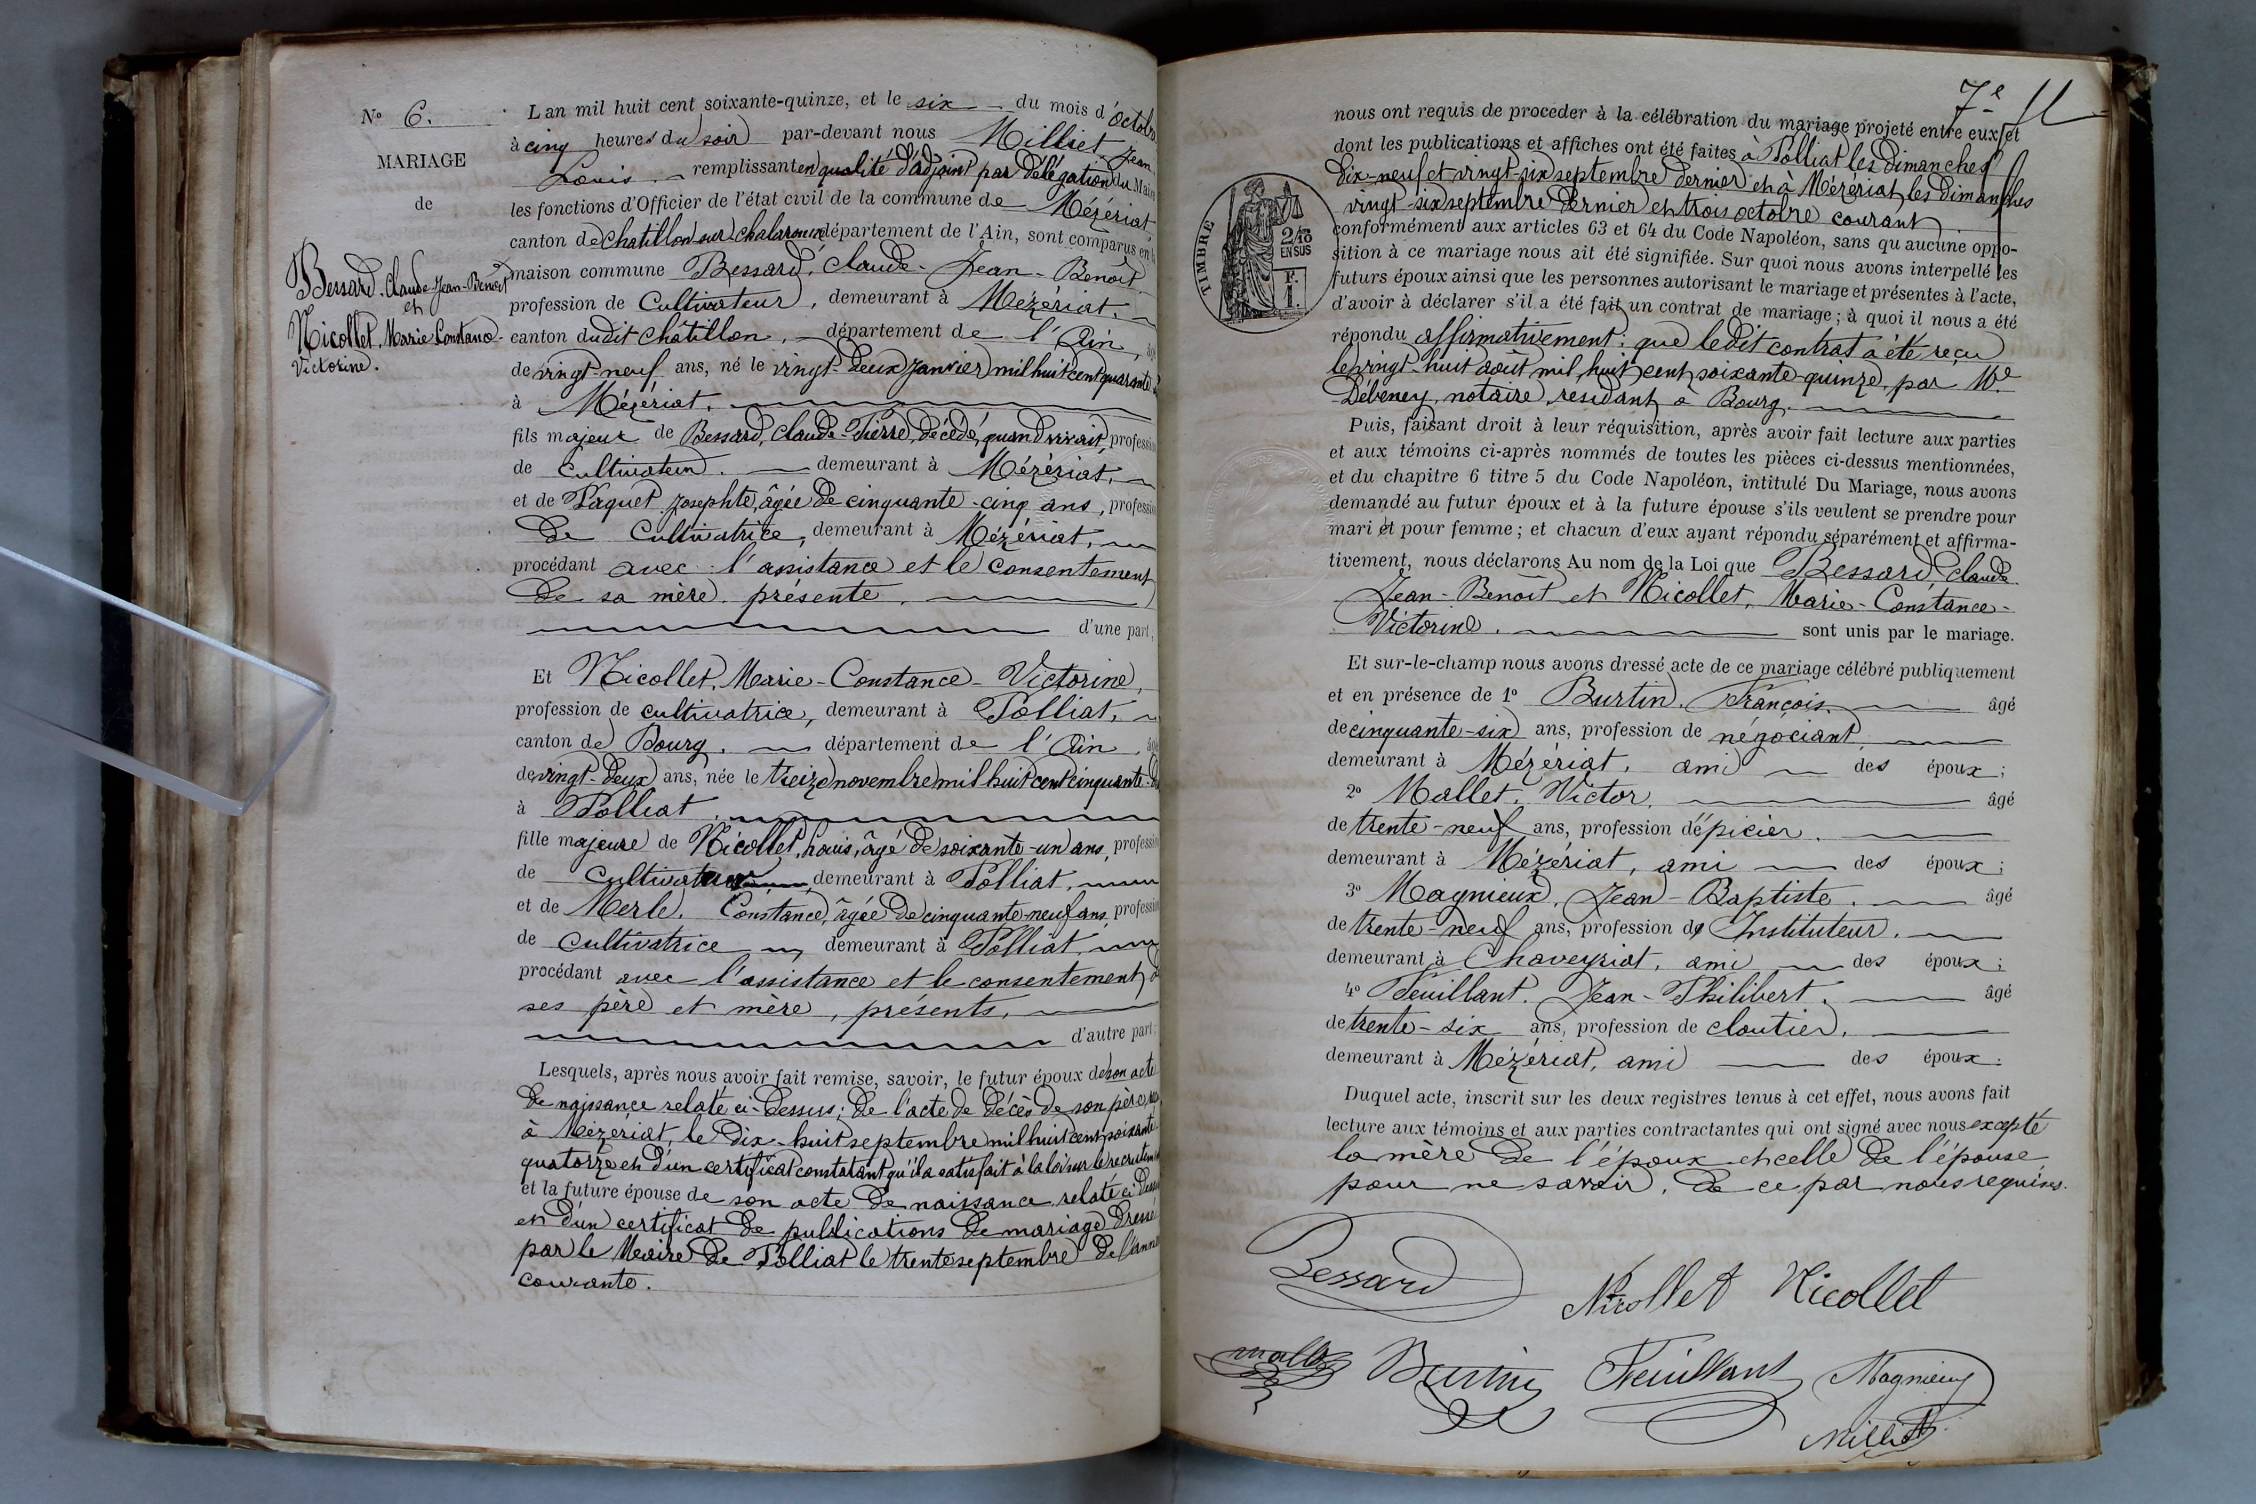 N° 6.
MARIAGE
de
Bessard, Claude-Jean-Benoit
et
Nicollet, Marie Constance-
Victorine.
L'an mil huit cent soixante-quinze, et le six du mois d'octobre
à cinq heures du soir par-devant nous Milliet, Jean
Louis. remplissant en qualité d'adjoint par délégation du Maire
les fonctions d'Officier de l'état civil de la commune de Mézériat
canton de Chatillon sur Chalaronne département de l'Ain, sont comparus en la
maison commune Bessard, Claude-Jean-Benoit
profession de Cultivateur, demeurant à Mézériat,
canton dudit Châtillon, département de l'Ain, âgé
de vingt-neuf ans, né le vingt-deux janvier mil huit cent quarante
à Mézériat.
fils majeur de Bessard, Claude-Pierre, décédé, quand vivait, profession
de cultivateur. demeurant à Mézériat,
et de Paquet Josephte, âgée de cinquante-cinq ans, profession
de Cultivatrice, demeurant à Mézériat,
procédant avec l'assistance et le consentement
de sa mère présente.
d'une part;
Et Nicollet, Marie-Constance-Victorine,
profession de cultivatrice, demeurant à Polliat,
canton de Bourg. département de l'Ain, âgée
de vingt-deux ans, née le treize novembre mil huit cent cinquante-
à Polliat.
fille majeure de Nicollet, Louis, âgé de soixante-un ans, profession
de cultivateur demeurant à Polliat,
et de Merle, Constance, âgée de cinquante-neuf ans, profession
de cultivatrice demeurant à Polliat,
procédant avec l'assistance et le consentement de
ses père et mère, présents,
d'autre part;
Lesquels, après nous avoir fait remise, savoir, le futur époux de son acte
de naissance relaté ci-dessus; de l'acte de décès de son père,
à Mézériat, le dix-huit septembre mil huit cent soixante
quatorze et d'un certificat constatant qu'il a satisfait à la loi sur le recrutement
et la future épouse de son acte de naissance relaté ci dessus
et d'un certificat de publications de mariage dressé
par le Maire de Polliat le trente septembre de l'année
courante.
7e 11
nous ont requis de procéder à la célébration du mariage projeté entre eux et
dont les publications et affiches ont été faites à Polliat les dimanches
dix-neuf et vingt-six septembre dernier et à Mézériat les dimanches
vingt-six septembre dernier et trois octobre courant
conformément aux articles 63 et 64 du Code Napoléon, sans qu'aucune oppo-
sition à ce mariage nous ait été signifiée. Sur quoi nous avons interpellé les
futurs époux ainsi que les personnes autorisant le mariage et présentes à l'acte,
d'avoir à déclarer s'il a été fait un contrat de mariage; à quoi il nous a été
répondu affirmativement; que ledit contrat a été reçu
le vingt-huit août mil huit cent soixante quinze, par Me
Débeney, notaire, résidant à Bourg.
TIMBRE
2/10
EN SUS
F.
1.
Puis, faisant droit à leur réquisition, après avoir fait lecture aux parties
et aux témoins ci-après nommés de toutes les pièces ci-dessus mentionnées,
et du chapitre 6 titre 5 du Code Napoléon, intitulé Du Mariage, nous avons
demandé au futur époux et à la future épouse s'ils veulent se prendre pour
mari et pour femme; et chacun d'eux ayant répondu séparément et affirma-
tivement, nous déclarons Au nom de la Loi que Bessard, Claude
Jean-Benoit et Nicollet, Marie-Constance-
Victorine. sont unis par le mariage.
Et sur-le-champ nous avons dressé acte de ce mariage célébré publiquement
et en présence de 1° Burtin, François. âgé
de cinquante-six ans, profession de négociant
demeurant à Mézériat, ami des époux;
2° Mallet, Victor, âgé
de trente-neuf ans, profession d'épicier.
demeurant à Mézériat, ami des époux;
3° Magnieux, Jean-Baptiste. âgé
de trente-neuf ans, profession d' Instituteur.
demeurant à Chaveyriat, ami des époux;
4° Feuillant, Jean-Philibert. âgé
de trente-six ans, profession de cloutier.
demeurant à Mézériat, ami des époux.
Duquel acte, inscrit sur les deux registres tenus à cet effet, nous avons fait
lecture aux témoins et aux parties contractantes qui ont signé avec nous excepté
la mère de l'époux et celle de l'épouse
pour ne savoir, de ce par nous requises.
Bessard
Nicollet Nicollet
Mallet Burtin Feuillant Magnieux
Milliet